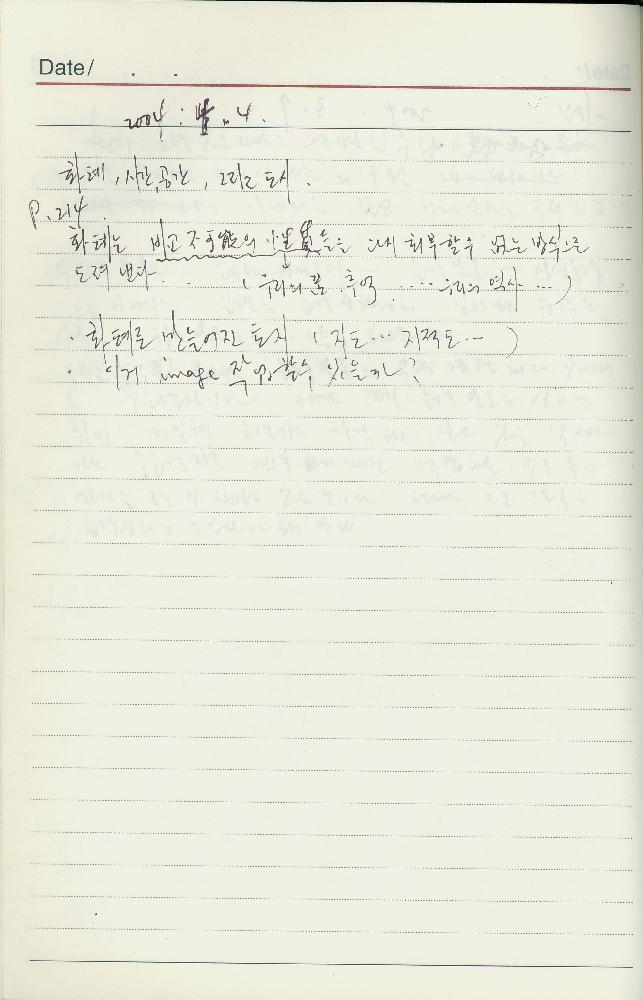 Date/ . .
2004. 4.
화폐, 시간, 공간, 그리고 도시.
P. 214.
화폐는 비교 不可能의 들을 회복할수 없는 방식으로
도려 낸다. . . . (우리의 꿈, 추억 .... 우리의 역사 ...)
· 화폐로 만들어진 도시 (지도... 지적도...)
· 이거 image 작업할수 있을까?